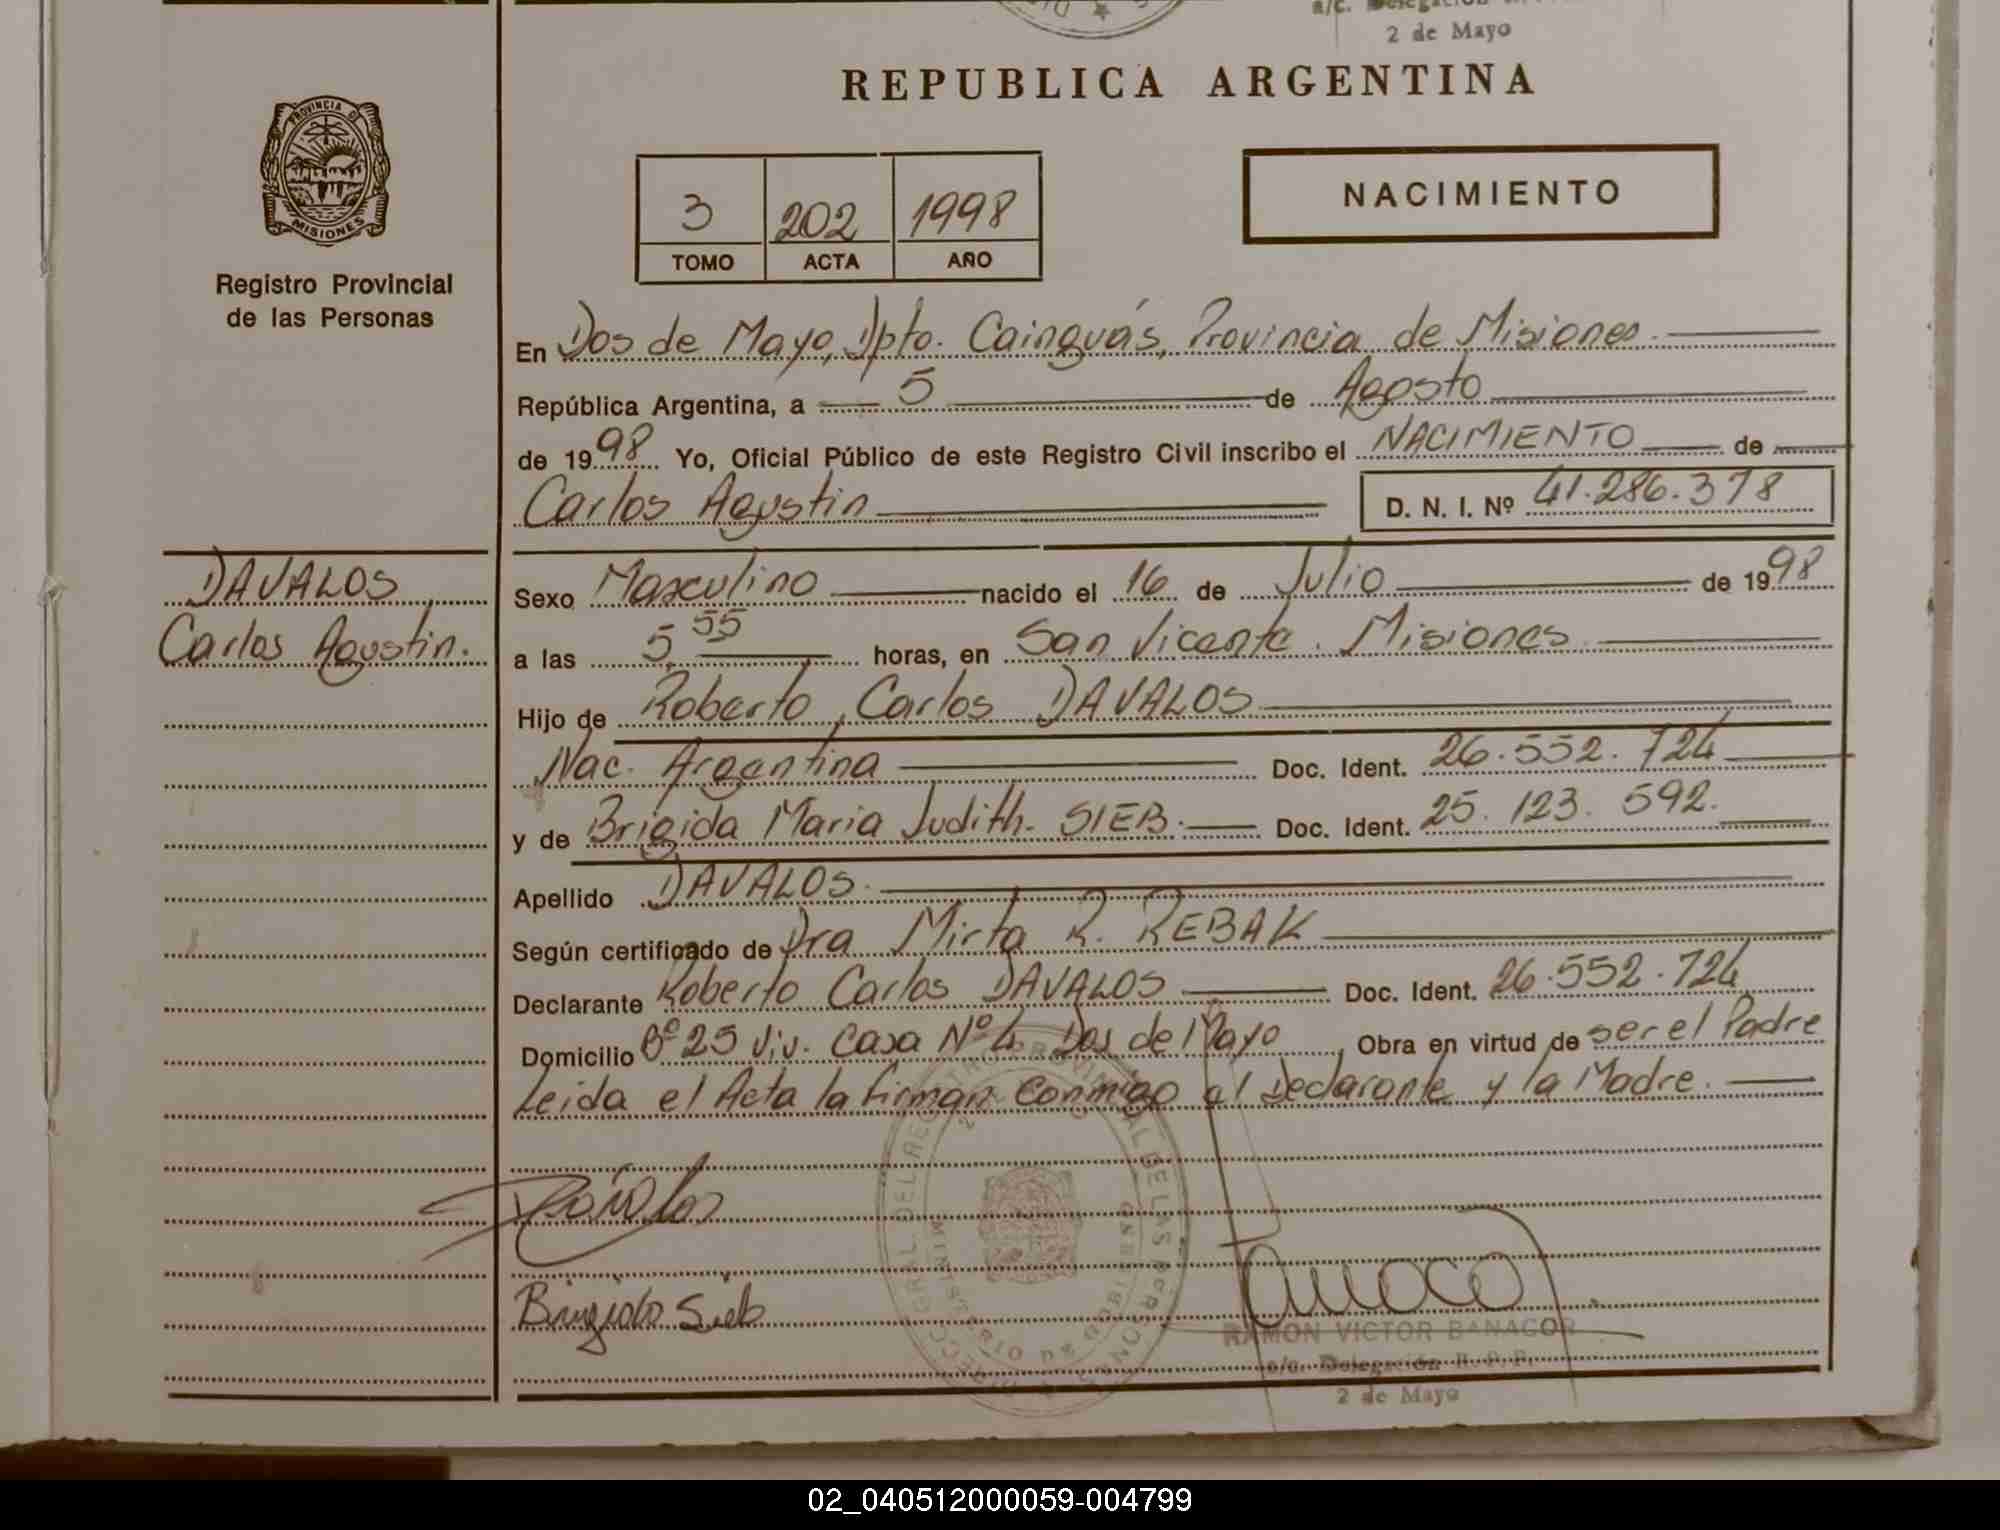 a/c. Delegación
2 de Mayo
REPUBLICA ARGENTINA
PROVINCIA DE
MISIONES
Registro Provincial
de las Personas
3 202 1998
TOMO ACTA AÑO
NACIMIENTO
En Dos de Mayo, Dpto. Cainguás, Provincia de Misiones.
República Argentina, a 5 de Agosto
de 1998 Yo, Oficial Público de este Registro Civil inscribo el NACIMIENTO de
Carlos Agustin D. N. I. Nº 41.286.378
DAVALOS
Carlos Agustin.
Sexo Masculino nacido el 16 de Julio de 1998
a las 5,55 horas, en San Vicente. Misiones
Hijo de Roberto Carlos DAVALOS
Nac. Argentina Doc. Ident. 26.552.724
y de Brigida Maria Judith. SIEB. Doc. Ident. 25.123.592.
Apellido DAVALOS.
Según certificado de Dra Mirta R. REBAK
Declarante Roberto Carlos DAVALOS Doc. Ident. 26.552.724
Domicilio Bº 25 Viv. Casa Nº 4 Dos de Mayo, Obra en virtud de ser el Padre
Leida el Acta la firman conmigo el Declarante y la Madre.
Brigida Sieb
RAMON VICTOR BANAGOR
a/c. Delegación R. P. P.
2 de Mayo
02_040512000059-004799